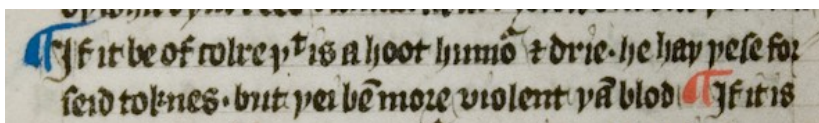 ¶ If it be of colre þᵗ is a hoot humõ ⁊ drie· he haþ þese for
seid toknes· but þei bē more violent þā blod ¶ If it is